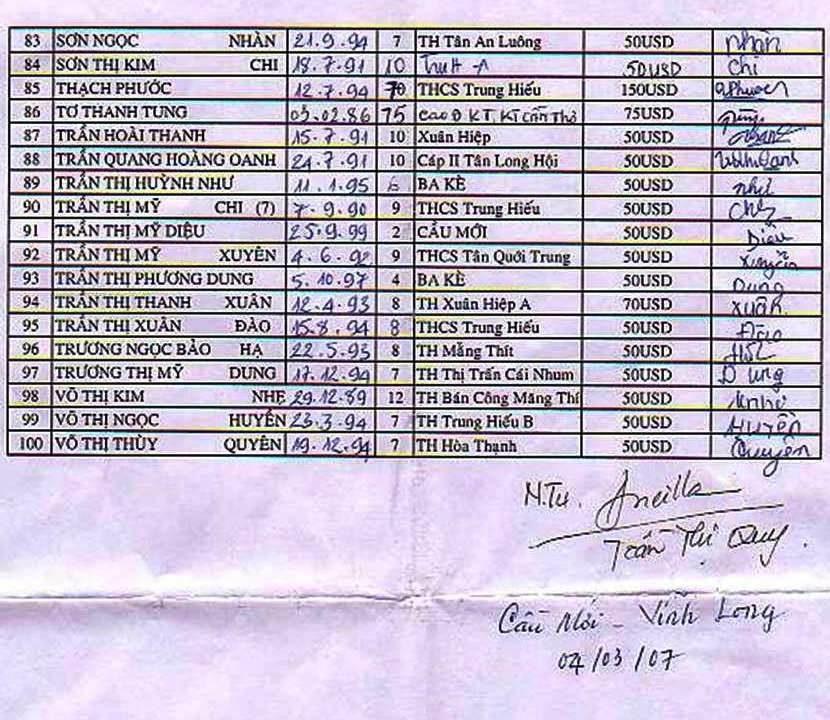 83 SƠN NGỌC NHÀN 21.9.94 7 TH Tân An Luông 50USD Nhàn
84 SƠN THỊ KIM CHI 18.7.91 10 50USD Chi
85 THẠCH PHƯỚC 12.7.94 THCS Trung Hiếu 150USD Phước
86 TƠ THANH TUNG 03.02.86 75 Cao Đ KT, KT Cần Thơ 75USD
87 TRẦN HOÀI THANH 15.7.91 10 Xuân Hiệp 50USD
88 TRẦN QUANG HOÀNG OANH 24.7.91 10 Cấp II Tân Long Hội 50USD
89 TRẦN THỊ HUỲNH NHƯ 11.1.95 6 BA KÈ 50USD Như
90 TRẦN THỊ MỸ CHI (7) 7.9.90 9 THCS Trung Hiếu 50USD Chi
91 TRẦN THỊ MỸ DIỆU 25.9.99 2 CẦU MỚI 50USD Diệu
92 TRẦN THỊ MỸ XUYÊN 4.6.92 9 THCS Tân Quới Trung 50USD Xuyên
93 TRẦN THỊ PHƯƠNG DUNG 5.10.97 4 BA KÈ 50USD Dung
94 TRẦN THỊ THANH XUÂN 12.4.93 8 TH Xuân Hiệp A 70USD Xuân
95 TRẦN THỊ XUÂN ĐÀO 15.8.94 8 THCS Trung Hiếu 50USD Đào
96 TRƯƠNG NGỌC BẢO HẠ 22.5.93 8 TH Mẳng Thít 50USD
97 TRƯƠNG THỊ MỸ DUNG 17.12.94 7 TH Thị Trấn Cái Nhum 50USD Dung
98 VÕ THỊ KIM NHẸ 29.12.89 12 TH Bán Công Măng Thí 50USD
99 VÕ THỊ NGỌC HUYỀN 23.3.94 7 TH Trung Hiếu B 50USD Huyền
100 VÕ THỊ THÙY QUYÊN 19.12.94 7 TH Hòa Thạnh 50USD Quyên
N.Tu.
Trần Thị Quy.
Cầu Mới - Vĩnh Long
04/03/07